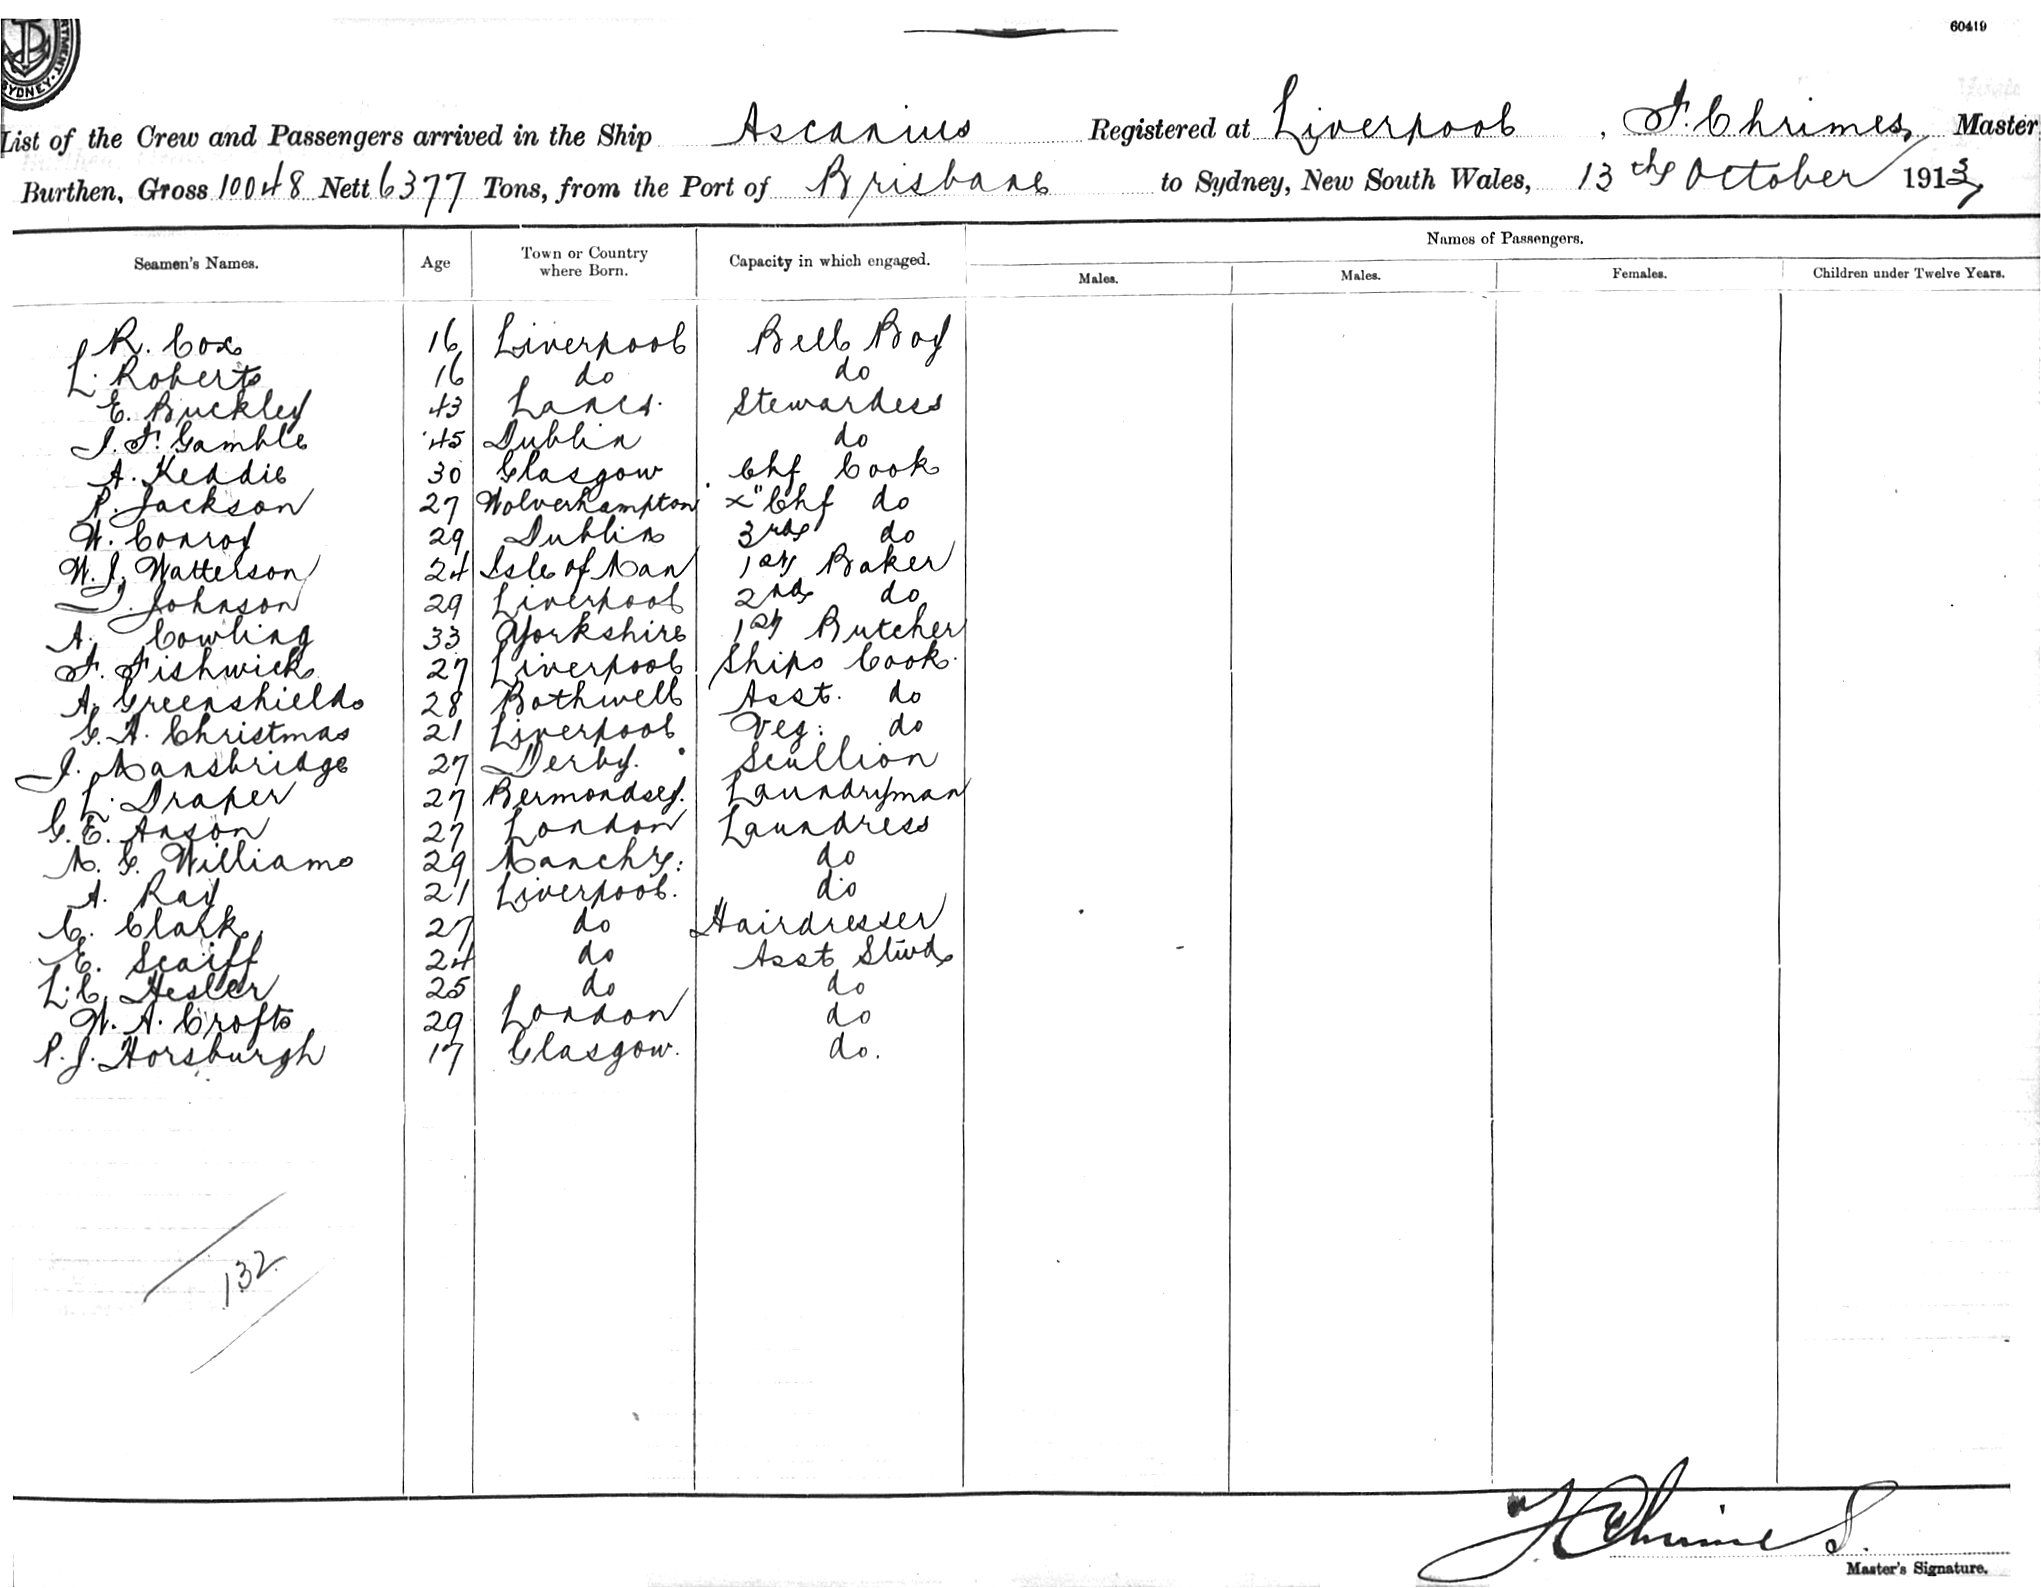 60419
RTMENT. SYDNEY.
List of the Crew and Passengers arrived in the Ship Ascanius Registered at Liverpool, F. Chrimes, Master
Burthen, Gross 10048 Nett 6377 Tons, from the Port of Brisbane to Sydney, New South Wales, 13th October 1913,
Names of Passengers.
Seamen's Names. Age Town or Country where Born. Capacity in which engaged. Males. Males. Females. Children under Twelve Years.
R. Cox 16 Liverpool Bell Boy
L. Roberts 16 do do
E. Buckley 43 Lancs. Stewardess
J. F. Gamble 45 Dublin do
A. Keddie 30 Glasgow Chf Cook
P. Jackson 27 Wolverhampton x" Chf do
W. Conroy 29 Dublin 3rd do
W. J. Watterson 24 Isle of Man 1st Baker
J. Johnson 29 Liverpool 2nd do
A. Cowling 33 Yorkshire 1st Butcher
F. Fishwick 27 Liverpool Ships Cook.
A. Greenshields 28 Bothwell Asst. do
G. A. Christmas 21 Liverpool Veg: do
J. Mansbridge 27 Derby. Scullion
L. Draper 27 Bermondsey. Laundryman
G. E. Anson 27 London Laundress
M. G. Williams 29 Manchr: do
A. Ray 21 Liverpool. do
C. Clark 27 do Hairdresser
E. Scaiff 24 do Asst Stwd
L. C. Hesler 25 do do
W. A. Crofts 29 London do
P. J. Horsburgh 17 Glasgow. do.
132
F Chrimes.
Master's Signature.